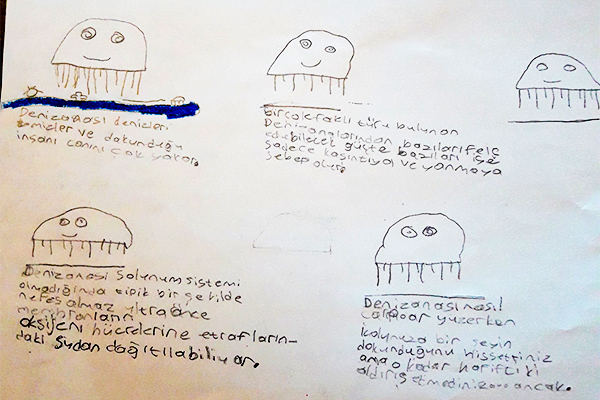 Denizanası denizleri
temizler ve dokunduğu
insanı canını çok yakar.
birçok farklı türü bulunan
Denizanalarından bazıları felç
edebilecek güçte bazıları ise
sadece kaşıntıya ve yanmaya
sebep olur.
Denizanası Solunum sistemi
olmadığında tipik bir şekilde
nefes almaz ultra ince
membranların
oksijeni hücrelerine etrafların-
daki sudan dağıtılabiliyor.
Denizanası nasıl
çarpar yüzerken
kolunuza bir şeyin
dokunduğunu hissettiniz
ama o kadar hafifti ki
aldırış etmediniz ancak.